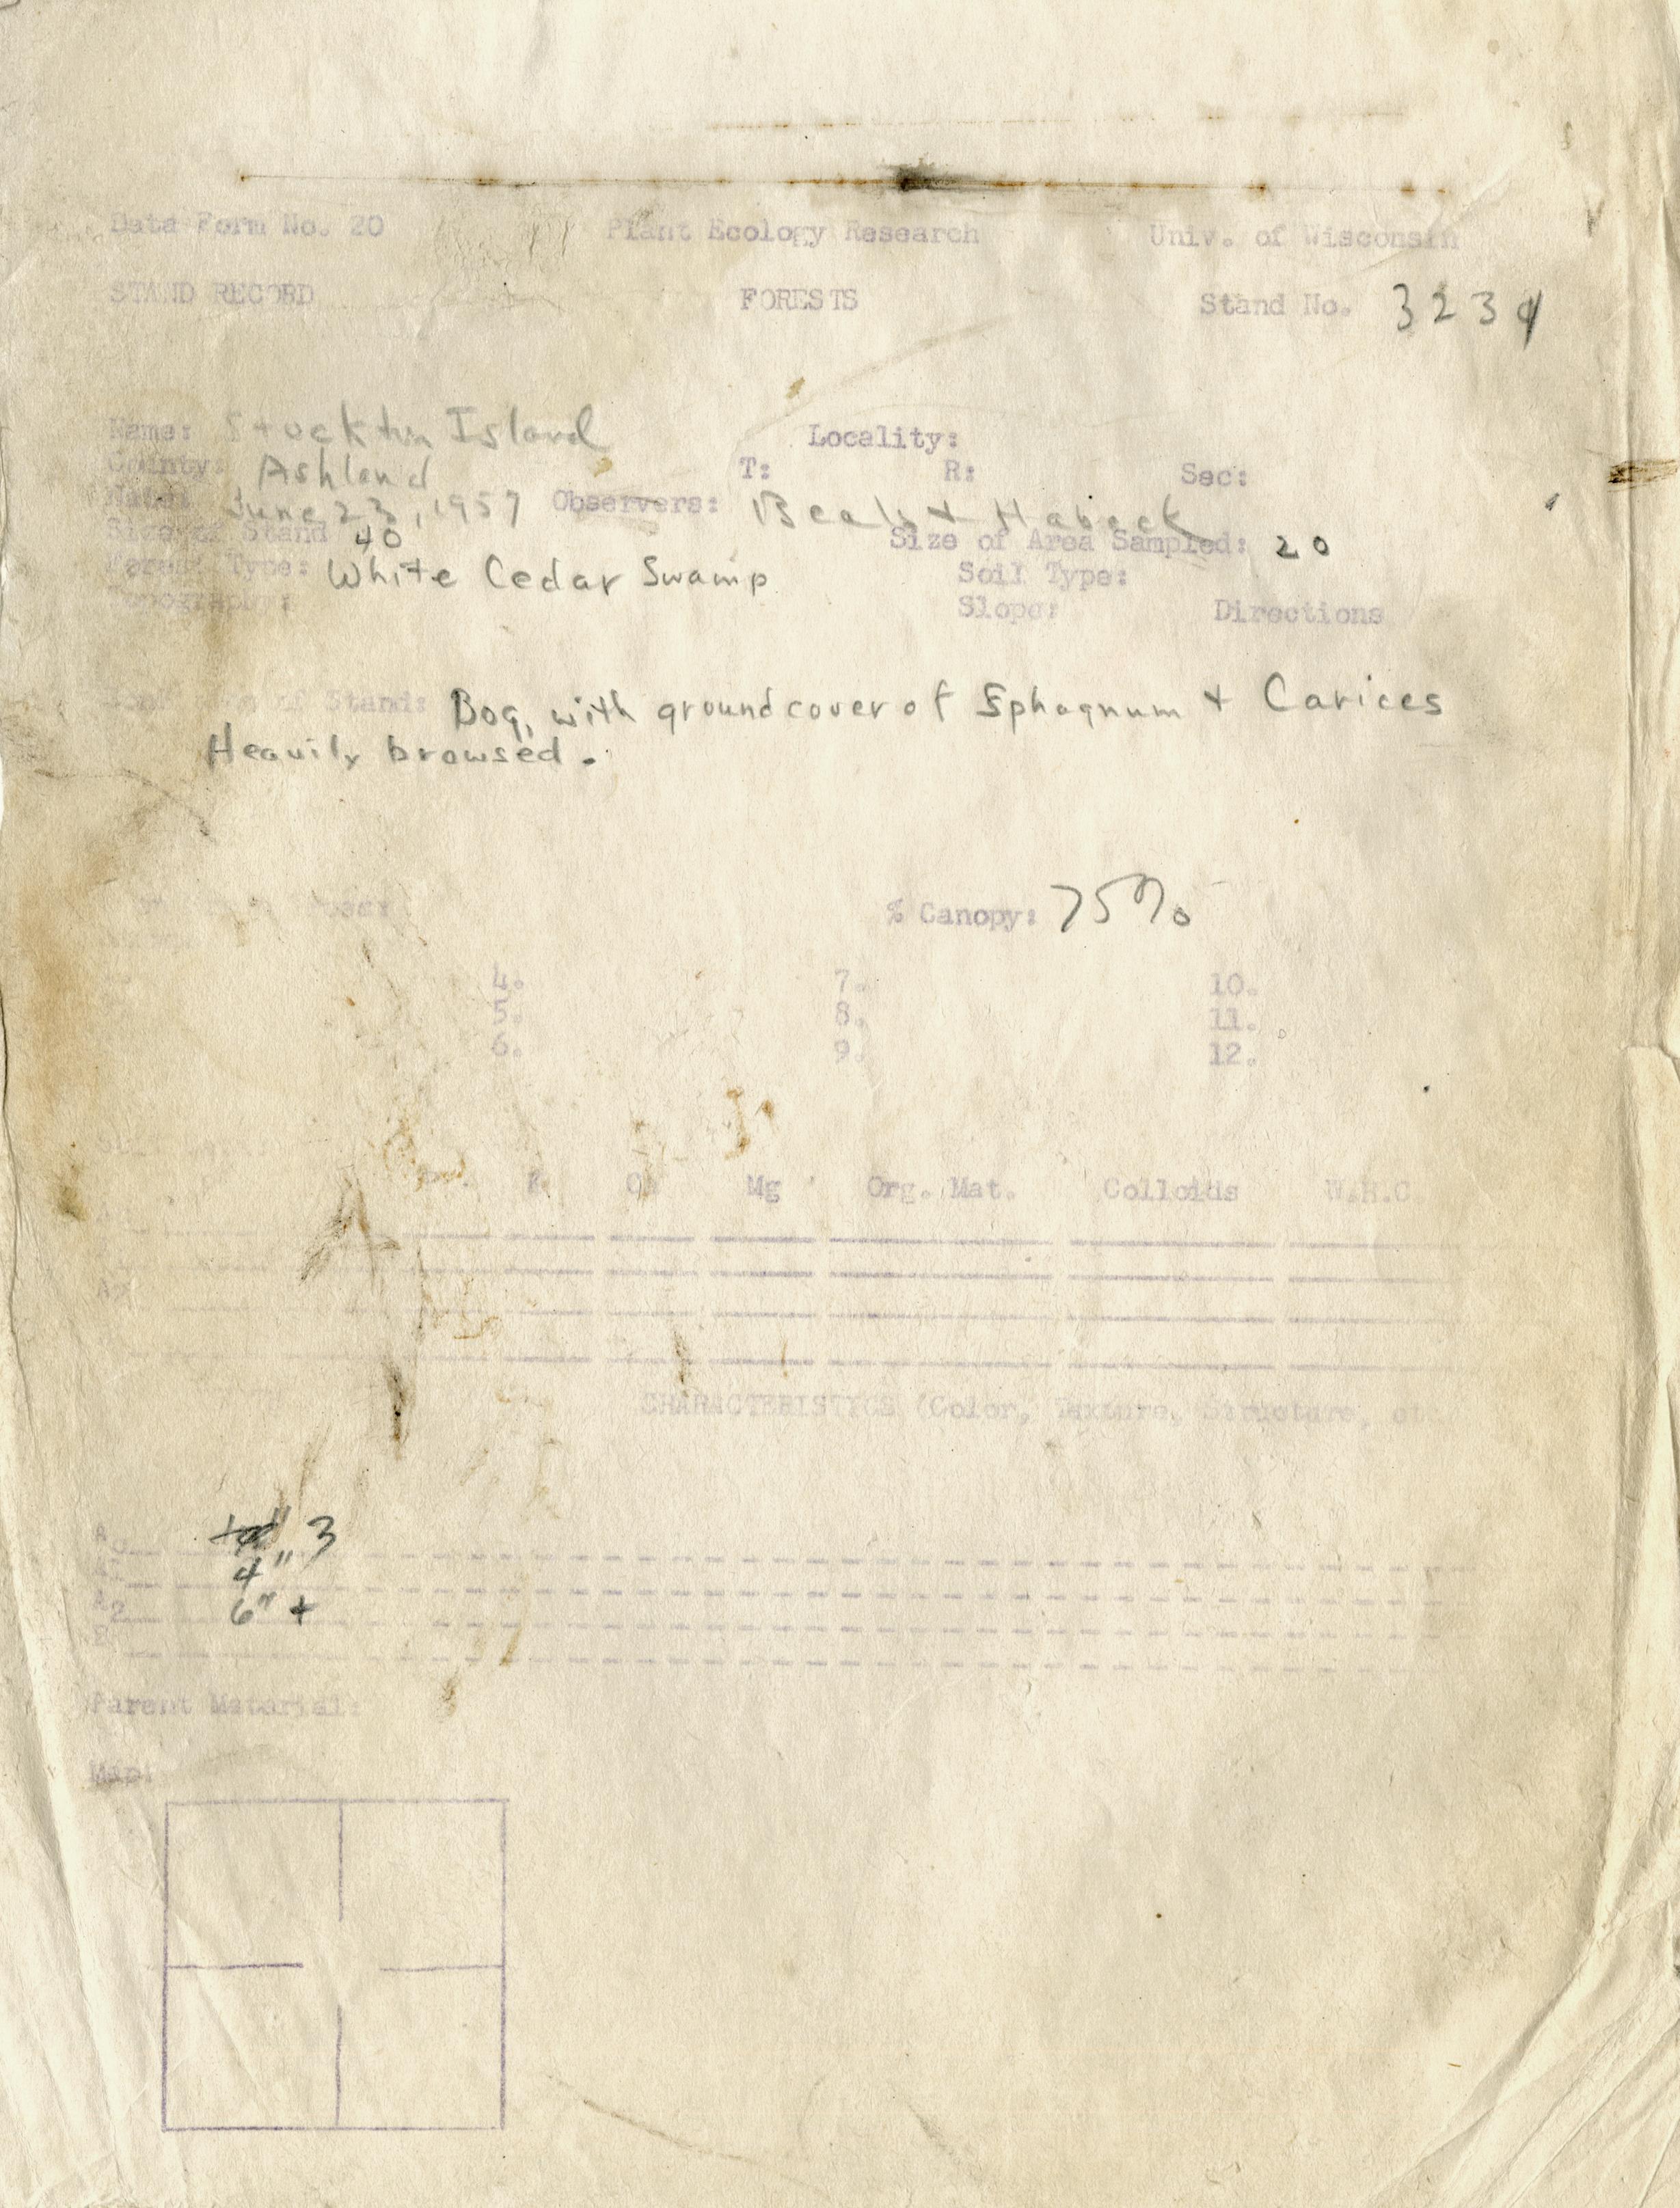 Data Form No. 20 Plant Ecology Research Univ. of Wisconsin
STAND RECORD FORESTS Stand No. 3234
Name: Stockton Island Locality:
County: Ashland T: R: Sec:
Date: June 23, 1957 Observers: Beals + Habeck
Size of Stand 40 Size of Area Sampled: 20
Forest Type: White Cedar Swamp Soil Type:
Topography: Slope: Directions
of Stand: Bog, with groundcover of Sphagnum + Carices
Heavily browsed.
% Canopy: 75%
4. 7. 10.
5. 8. 11.
6. 9. 12.
K Mg Org. Mat. Colloids W.H.C.
A2
CHARACTERISTICS (Color, Texture, Structure, etc
A0 3
4"
A2 6" +
B
Parent Material:
Map: